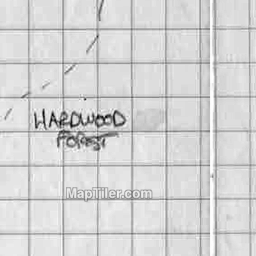 HARDWOOD
FOREST
MapTiler.com